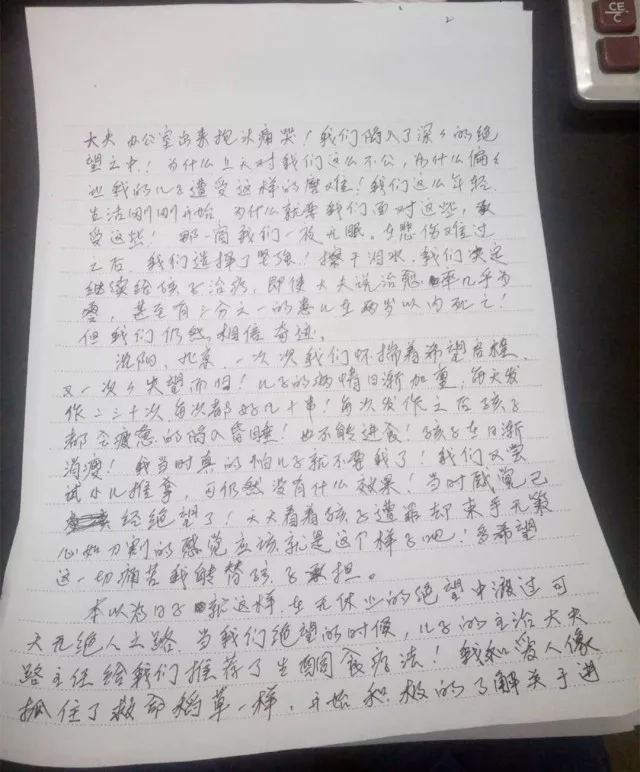 2
CE/C
大夫办公室出来抱头痛哭！我们陷入了深々的绝
望之中！为什么上天对我们这么不公，为什么偏々
让我的儿子遭受这样的磨难！我们这么年轻.
生活刚刚开始，为什么就要我们面对这些，承
受这些！那一宿我们一夜无眠。在悲伤难过
之后，我们选择了坚强！擦干泪水，我们决定
继续给孩子治疗，即使大夫说治愈率几乎为
零，甚至有三分之一的患儿在两岁以内死亡！
但我们仍然相信奇迹。
沈阳、北京，一次次我们怀揣着希望启程，
又一次々失望而归！儿子的病情日渐加重，每天发
作二三十次每次都好几十串！每次发作之后孩子
都会疲惫的陷入昏睡！也不能进食！孩子在日渐
消瘦！我当时真的怕儿子就不要我了！我们又尝
试小儿推拿，可仍然没有什么效果！当时感觉已
经绝望了！天天看着孩子遭罪却束手无策
心如刀割的感觉应该就是这个样子吧！多希望
这一切痛苦我能替孩子承担。
本以为日子就这样，在无休止的绝望中渡过可
天无绝人之路，当我们绝望的时候，儿子的主治大夫
路主任给我们推荐了生酮食疗法！我和爱人像
抓住了救命稻草一样，开始积极的了解关于进